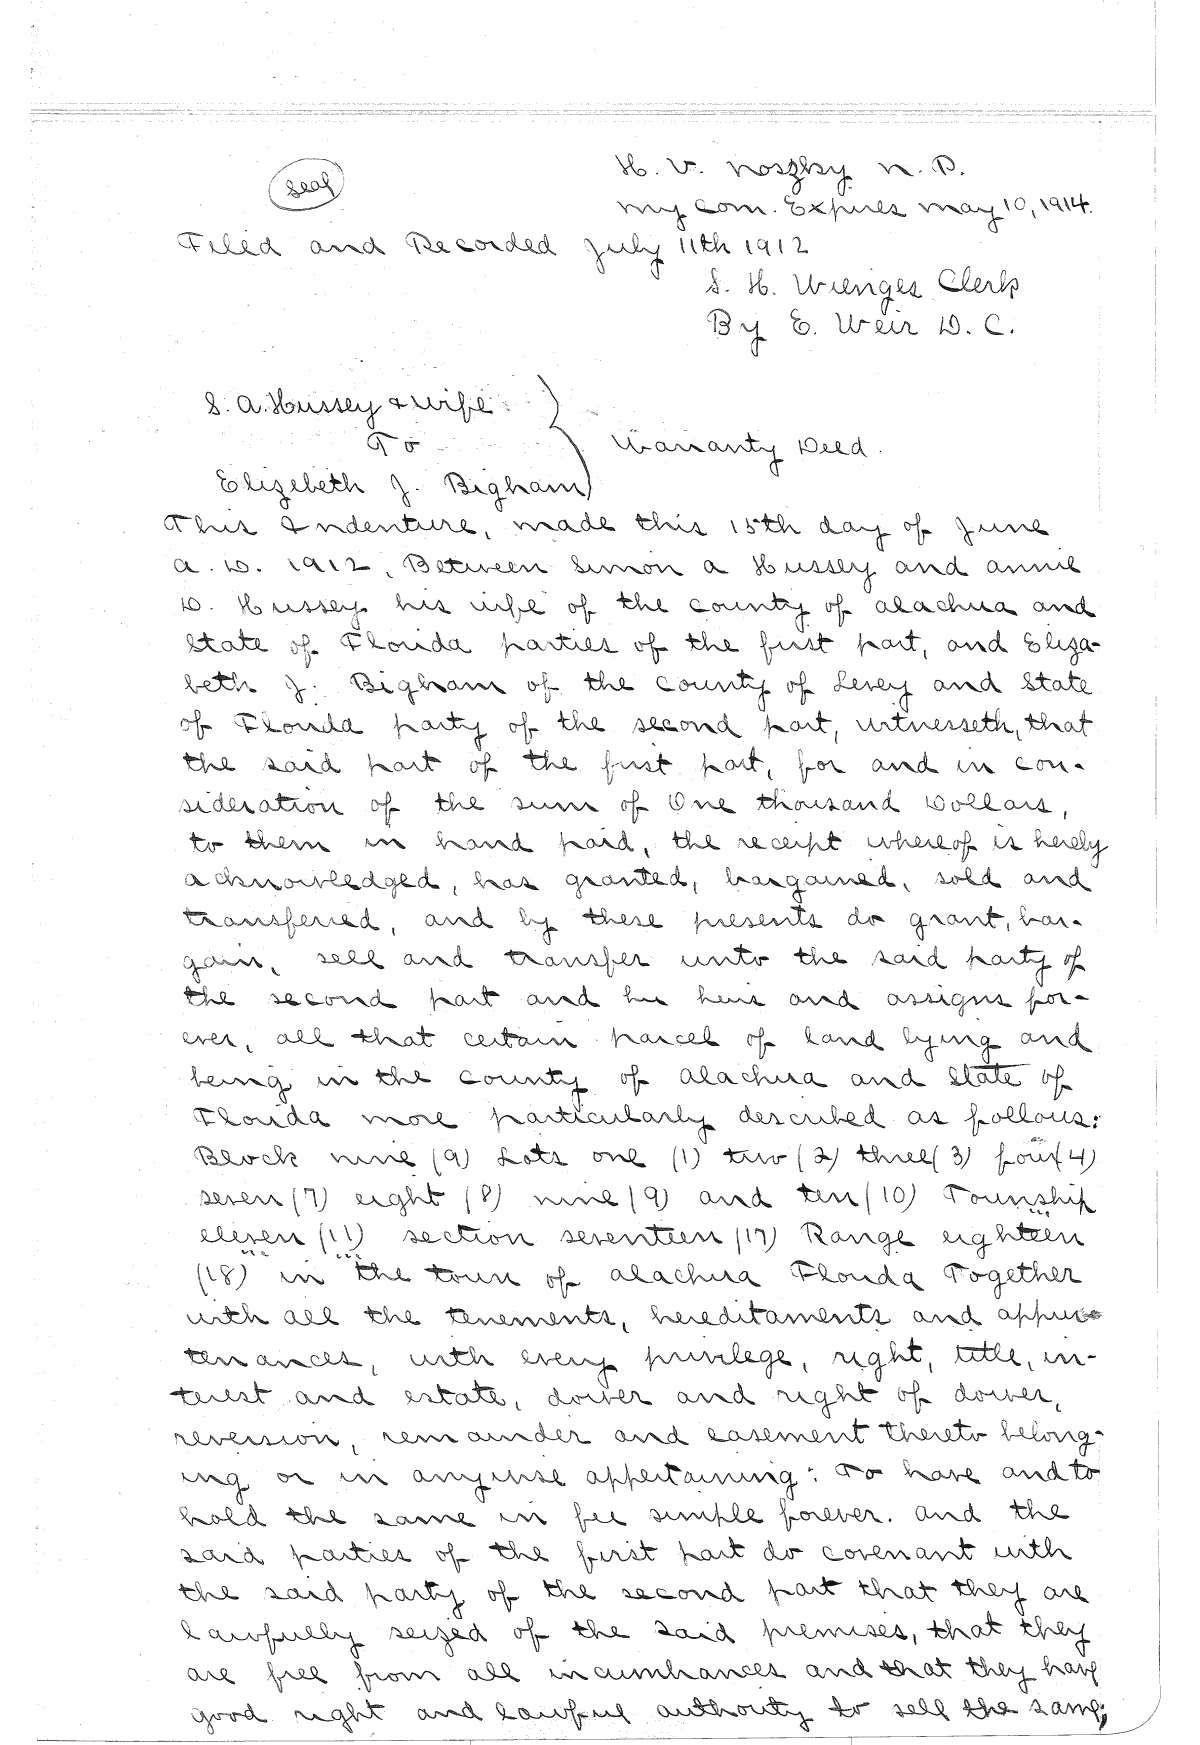 H. V. Noszky N. P.
Seal
My Com. Expires May 10, 1914.
Filed and Recorded July 11th 1912
S. H. Wienges Clerk
By E. Weir D. C.
S. A. Hussey & Wife
To
Warranty Deed.
Elizebeth J. Bigham
This Indenture, made this 15th day of June
A. D. 1912, Between Simon A Hussey and Annie
D. Hussey his wife of the county of Alachua and
State of Florida parties of the first part, and Eliza-
beth J. Bigham of the County of Levey and State
of Florida party of the second part, witnesseth, that
the said part of the first part, for and in con-
sideration of the sum of One thousand Dollars,
to them in hand paid, the receipt whereof is hereby
acknowledged, has granted, bargained, sold and
transferred, and by these presents do grant, bar-
gain, sell and transfer unto the said party of
the second part and her heirs and assigns for-
ever, all that certain parcel of land lying and
being in the County of Alachua and State of
Florida more particularly described as follows:
Block nine (9) Lots one (1) two (2) three (3) four (4)
seven (7) eight (8) nine (9) and ten (10) Township
eleven (11) section seventeen (17) Range eighteen
(18) in the town of Alachua Florida Together
with all the tenements, hereditaments and appur-
tenances, with every privilege, right, title, in-
terest and estate, dower and right of dower,
reversion, remainder and easement thereto belong-
ing or in anywise appertaining: To have and to
hold the same in fee simple forever. And the
said parties of the first part do covenant with
the said party of the second part that they are
lawfully seized of the said premises, that they
are free from all incumbrances and that they have
good right and lawful authority to sell the same;